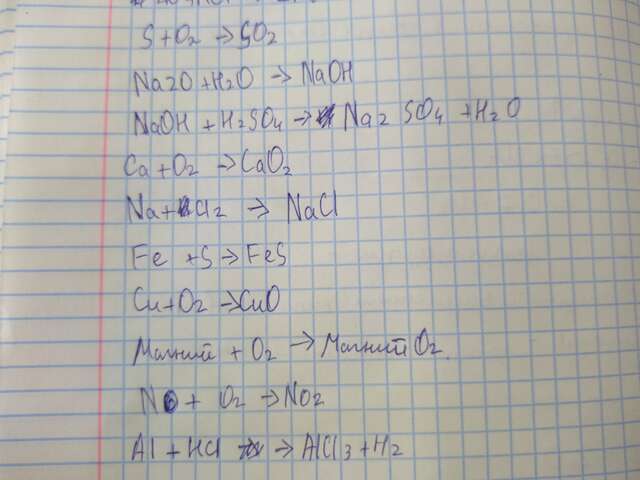 S + O2 → SO2
Na2O + H2O → NaOH
NaOH + H2SO4 → Na2SO4 + H2O
Ca + O2 → CaO2
Na + Cl2 → NaCl
Fe + S → FeS
Cu + O2 → CuO
Магний + O2 → Магний O2
NO + O2 → NO2
Al + HCl → AlCl3 + H2